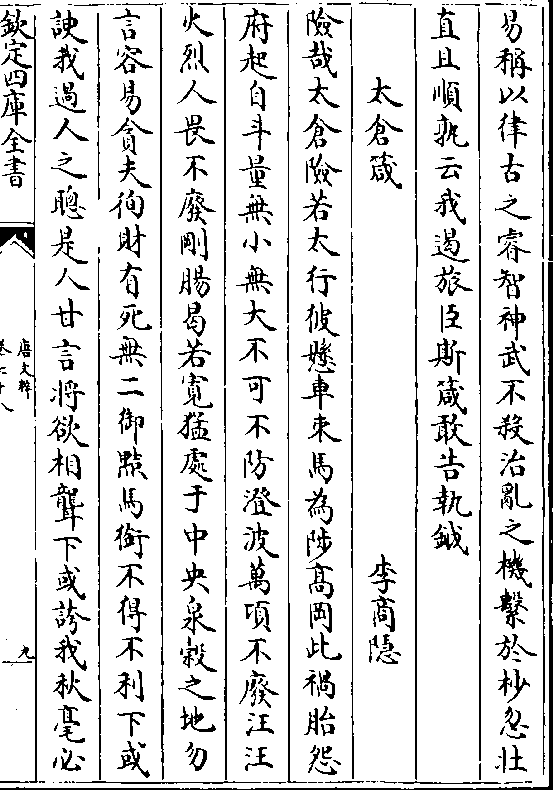 易稱以律古之睿智神武不殺治亂之機繫於杪忽壮
直且順孰云我遏旅臣斯箴敢告執鉞
太倉箴 李商隱
險哉太倉險若太行彼懸車束馬為陟髙岡此禍胎怨
府起自斗量無小無大不可不防澄波萬頃不廢汪汪
火烈人畏不廢剛腸曷若寛猛處于中央泉穀之地勿
言容易貪夫徇財有死無二御黠馬銜不得不利下或
諛我過人之聰是人甘言將欲相聾下或誇我秋毫必
欽定四庫全書
唐文粹
卷七十八
九